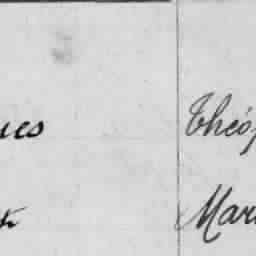 ues Théop
t Mari